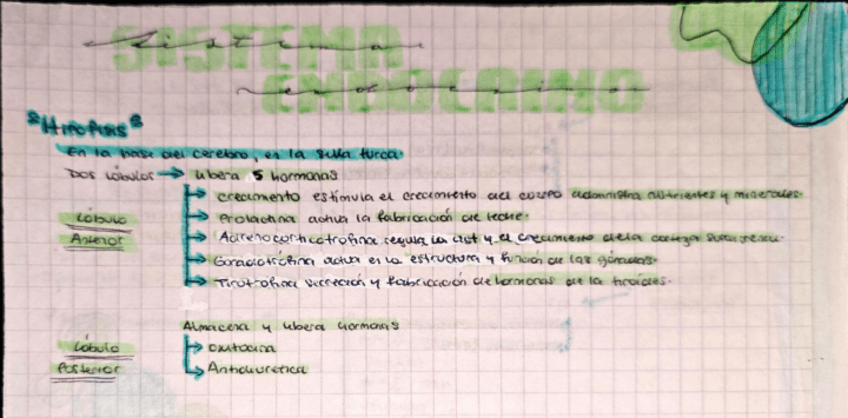 SISTEMA
Sistema
ENDOCRINO
endocrino
"Hipófisis"
En la base del cerebro, en la silla turca.
Dos lóbulos → libera 5 hormonas
Lóbulo Anterior
crecimiento estimula el crecimiento del cuerpo administra nutrientes y minerales.
Prolactina activa la fabricación de leche.
Adrenocorticotrofina regula la act y el crecimiento de la corteza suprarrenal.
Gonadotrófina actua en la estructura y función de las gónadas.
Tirotrofina secreción y fabricación de hormonas de la tiroides.
Almacena y libera hormonas
Lóbulo Posterior
oxitocina
Antidiuretica